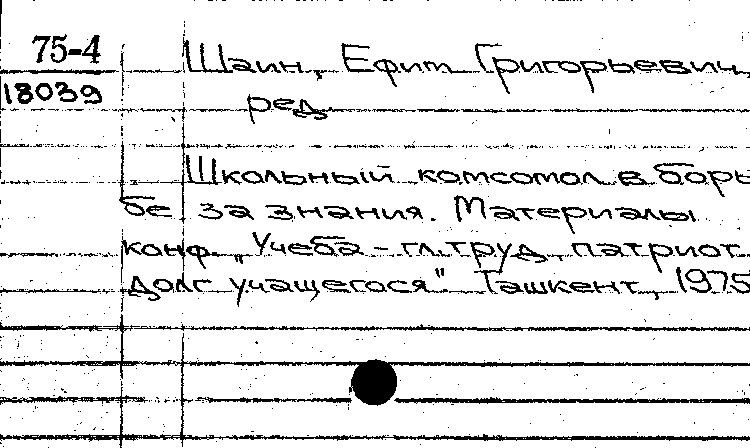 75-4
18039
Шаин, Ефим Григорьевич,
ред.
Школьный комсомол в борь
бе за знания. Материалы
конф. „Учеба - гл. труд, патриот.
долг учащегося" Ташкент, 1975